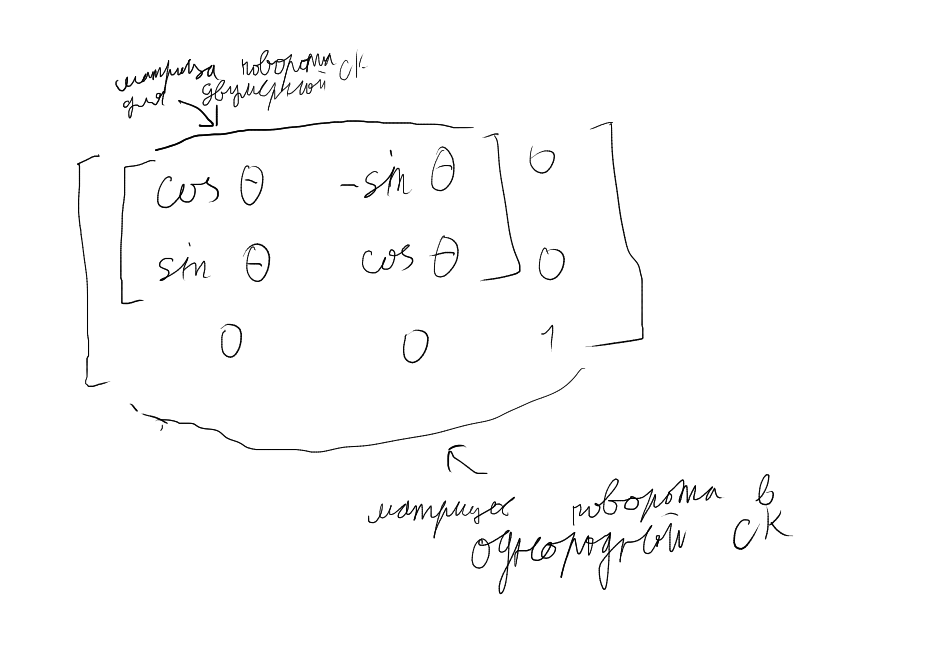 матрица поворота СК
для двумерной
cos θ -sin θ 0
sin θ cos θ 0
0 0 1
матрица поворота в
однородной СК